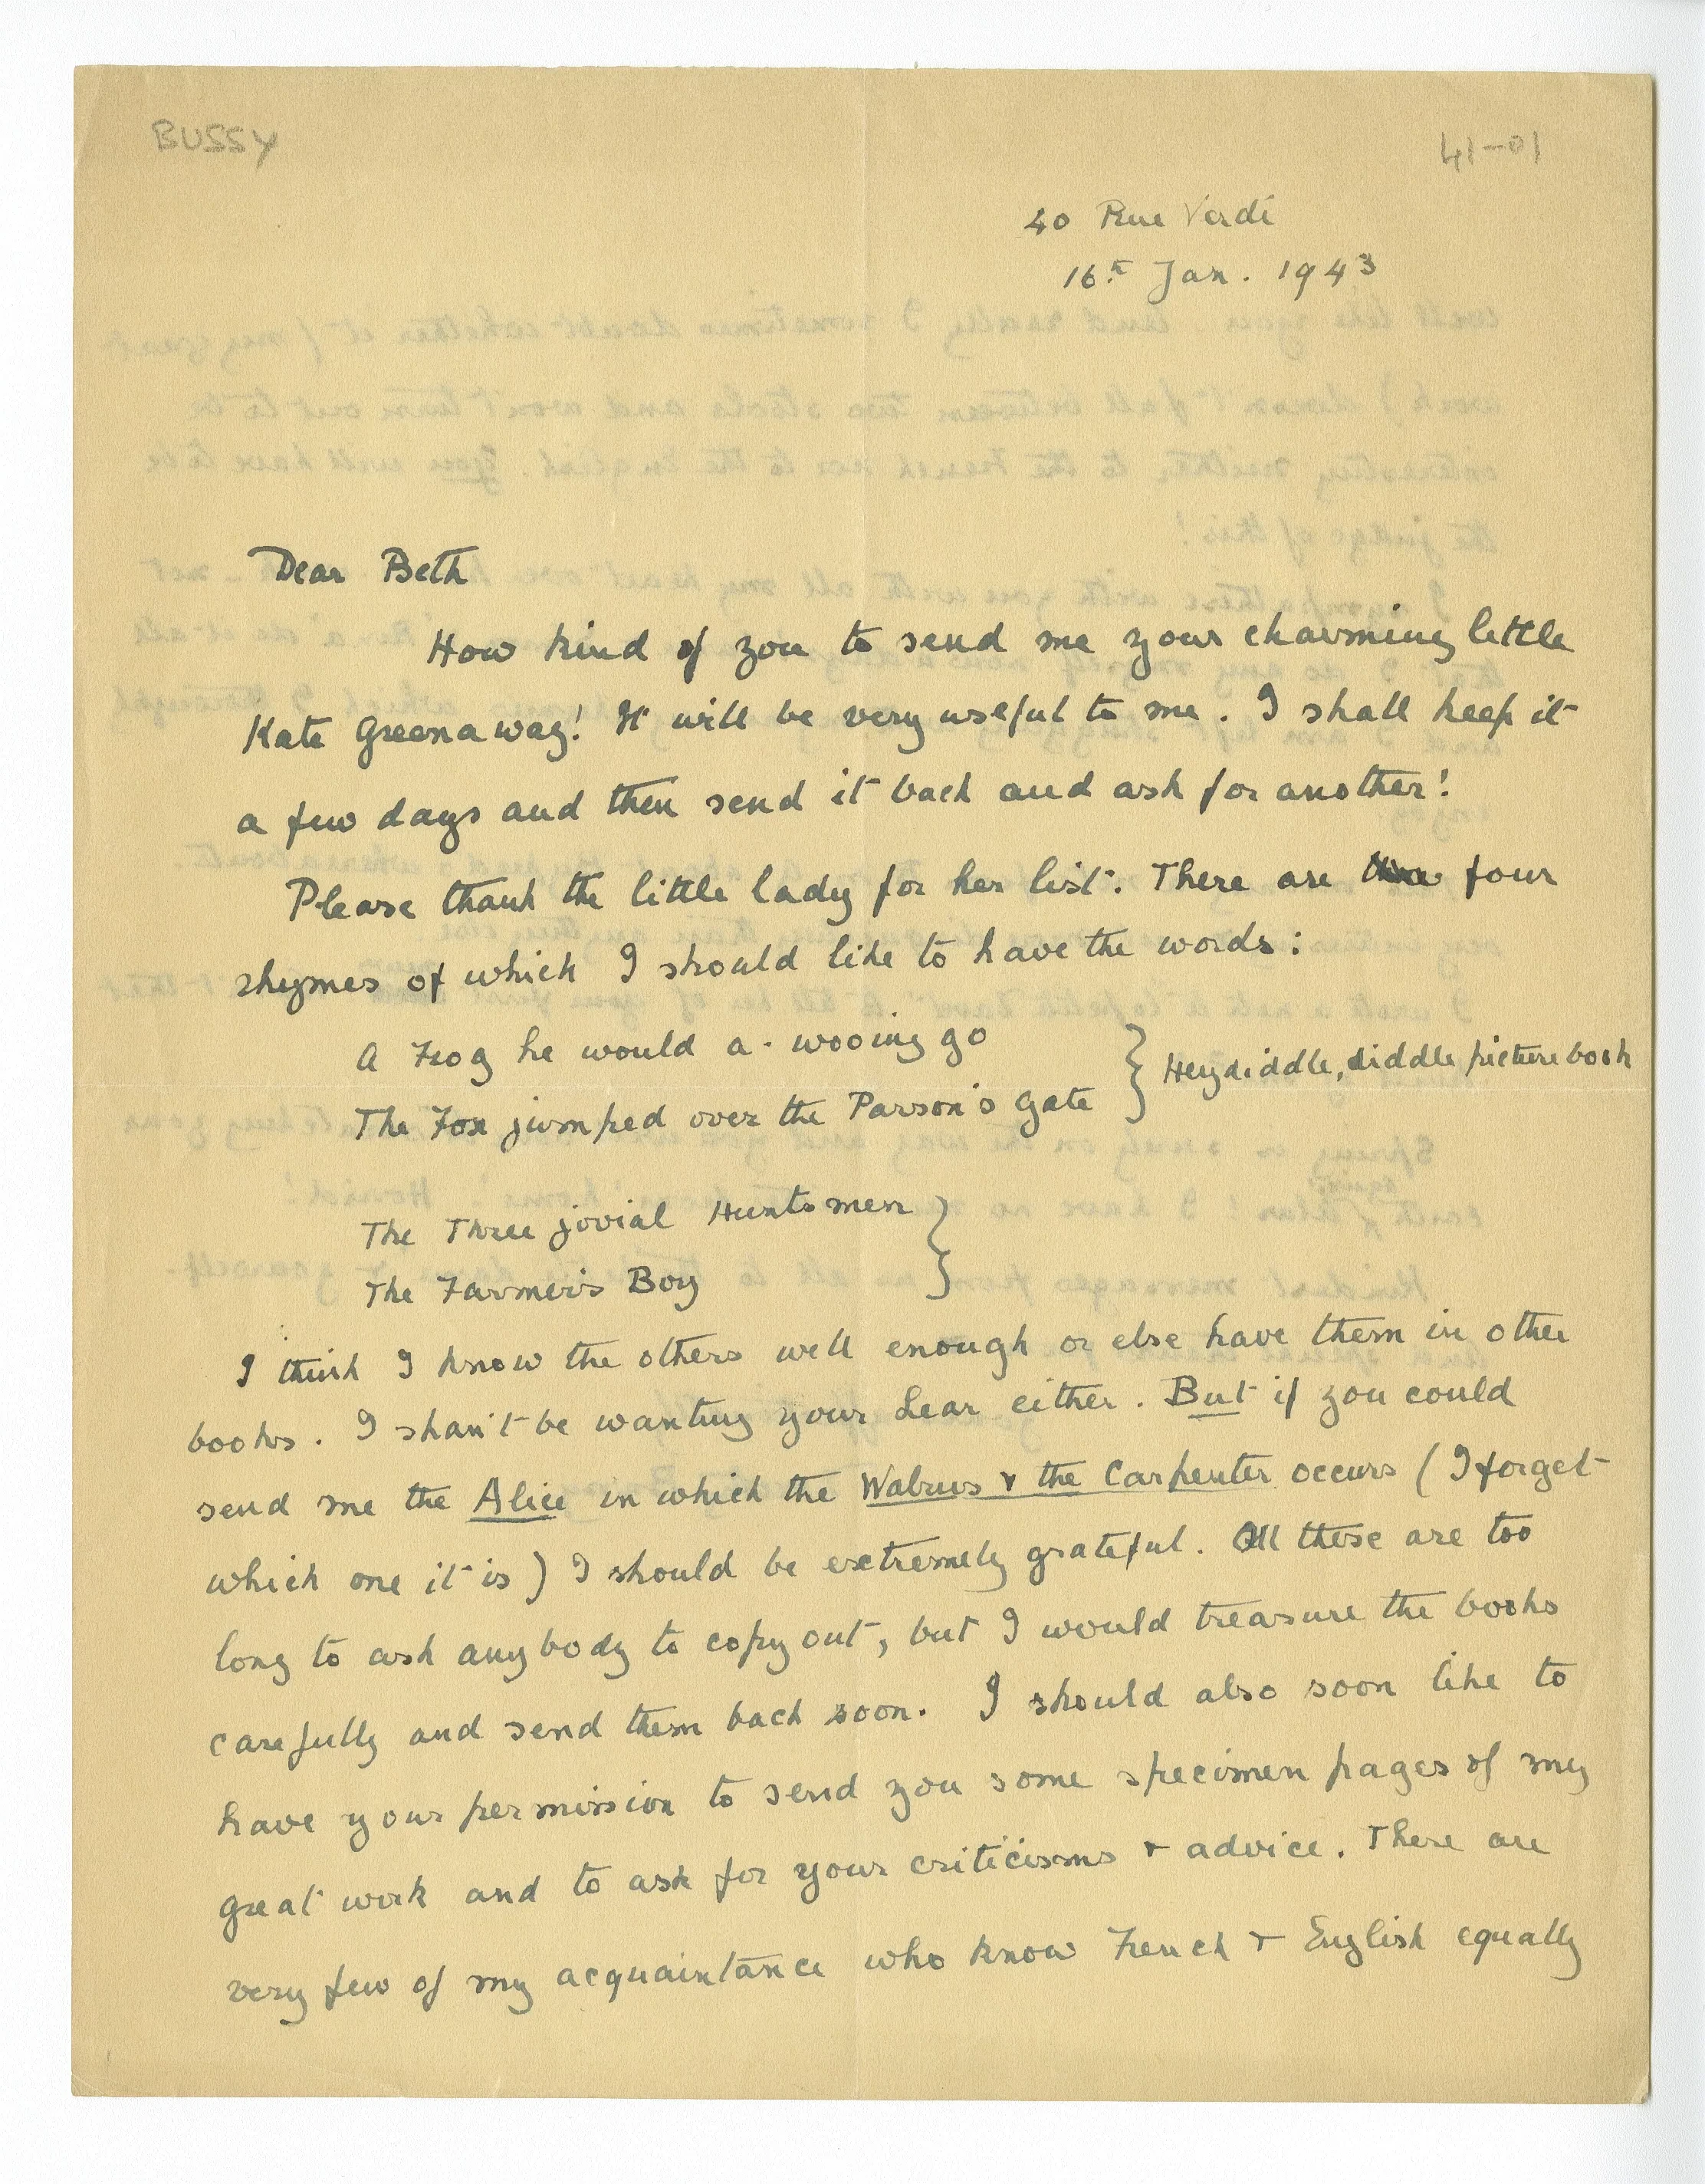 BUSSY
41-01
40 Rue Verdi
16th Jan. 1943
Dear Beth
How kind of you to send me your charming little
Kate Greenaway! It will be very useful to me. I shall keep it
a few days and then send it back and ask for another!
Please thank the little lady for her list. There are four
rhymes of which I should like to have the words:
A Frog he would a-wooing go
The Fox jumped over the Parson's gate } Hey diddle, diddle picture book
The Three jovial Huntsmen
The Farmer's Boy }
I think I know the others well enough or else have them in other
books. I shan't be wanting your Lear either. But if you could
send me the Alice in which the Walrus & the Carpenter occurs (I forget
which one it is) I should be extremely grateful. All these are too
long to ask anybody to copy out, but I would treasure the books
carefully and send them back soon. I should also soon like to
have your permission to send you some specimen pages of my
great work and to ask for your criticisms & advice. There are
very few of my acquaintance who know French & English equally